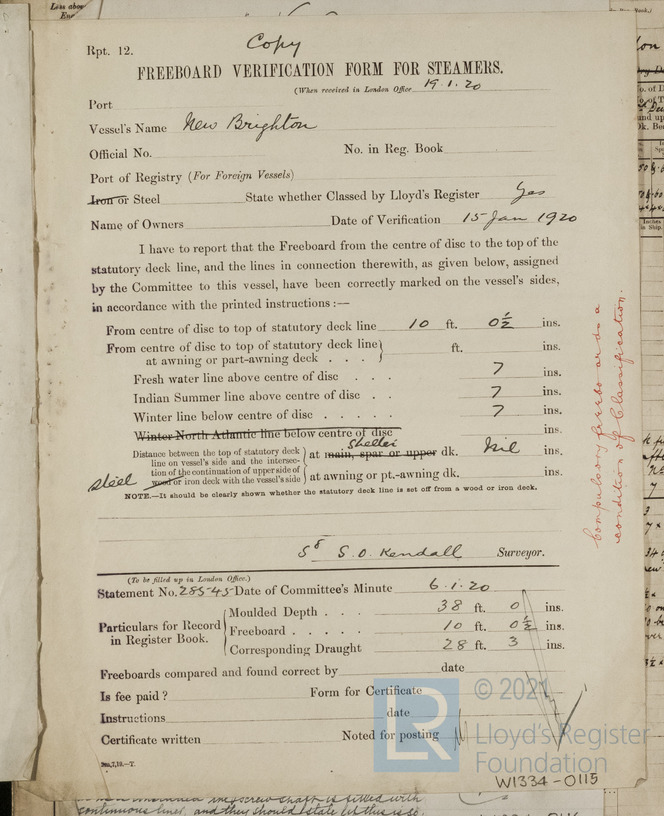 Less abov
Copy
Rpt. 12.
FREEBOARD VERIFICATION FORM FOR STEAMERS.
(When received in London Office 19.1.20
Port
Vessel's Name New Brighton
Official No. No. in Reg. Book
Port of Registry (For Foreign Vessels)
Iron or Steel State whether Classed by Lloyd's Register Yes
Name of Owners Date of Verification 15 Jan 1920
I have to report that the Freeboard from the centre of disc to the top of the
statutory deck line, and the lines in connection therewith, as given below, assigned
by the Committee to this vessel, have been correctly marked on the vessel's sides,
in accordance with the printed instructions :—
From centre of disc to top of statutory deck line 10 ft. 0½ ins.
From centre of disc to top of statutory deck line
at awning or part-awning deck . . . ft. ins.
Fresh water line above centre of disc . . . 7 ins.
Indian Summer line above centre of disc . . 7 ins.
Winter line below centre of disc . . . . . 7 ins.
Winter North Atlantic line below centre of disc ins.
Distance between the top of statutory deck
line on vessel's side and the intersec-
tion of the continuation of upper side of
steel wood or iron deck with the vessel's side
shelter
at main, spar or upper dk. Nil ins.
at awning or pt.-awning dk. ins.
NOTE.—It should be clearly shown whether the statutory deck line is set off from a wood or iron deck.
Compulsory freeboard as a
condition of Classification.
Sd S.O. Kendall Surveyor.
(To be filled up in London Office.)
Statement No. 28545 Date of Committee's Minute 6.1.20
Particulars for Record
in Register Book.
Moulded Depth . . . 38 ft. 0 ins.
Freeboard . . . . . 10 ft. 0½ ins.
Corresponding Draught 28 ft. 3 ins.
Freeboards compared and found correct by date
Is fee paid ? Form for Certificate
Instructions date
Certificate written Noted for posting
© 2021
Lloyd's Register
Foundation
LR
W1334-0115
continuous liner, and they should state if this is so.